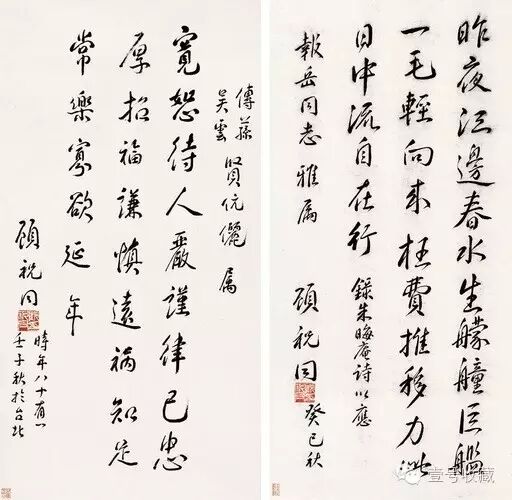 昨夜江邊春水生艨艟巨艦
一毛輕向來枉費推移力此
日中流自在行 錄朱晦庵詩以應
報岳同志雅屬 顧祝同 癸巳秋
吳雲 賢伉儷屬
寬恕待人嚴謹律己忠
厚招福謙慎遠禍知足
常樂寡欲延年
顧祝同 時年八十有一
壬子秋於台北
壹号收藏